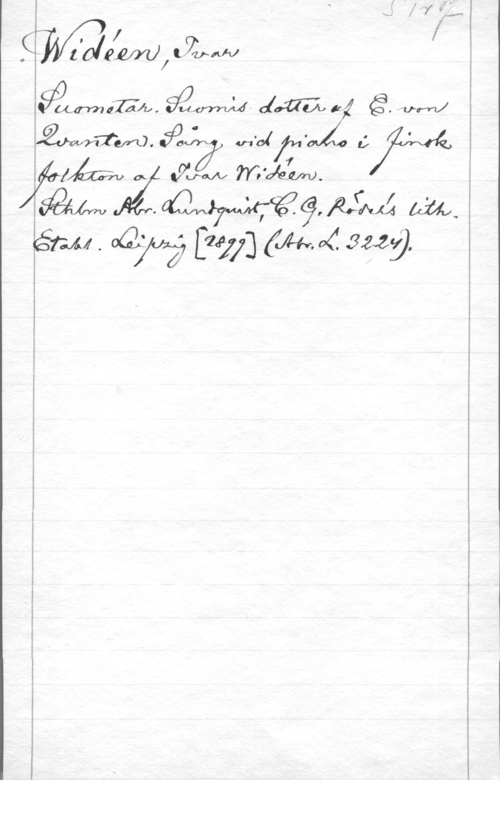 Widéen, Ivar
Suometar. Suomis dotter af E. von
Qvanten. Sång vid piano i finsk
folkton af Ivar Widéen.
Sthlm Abr. Lundquist, C. G. Röder's lith.
Etabl. Leipzig [1899] (Abr. L. 3224).